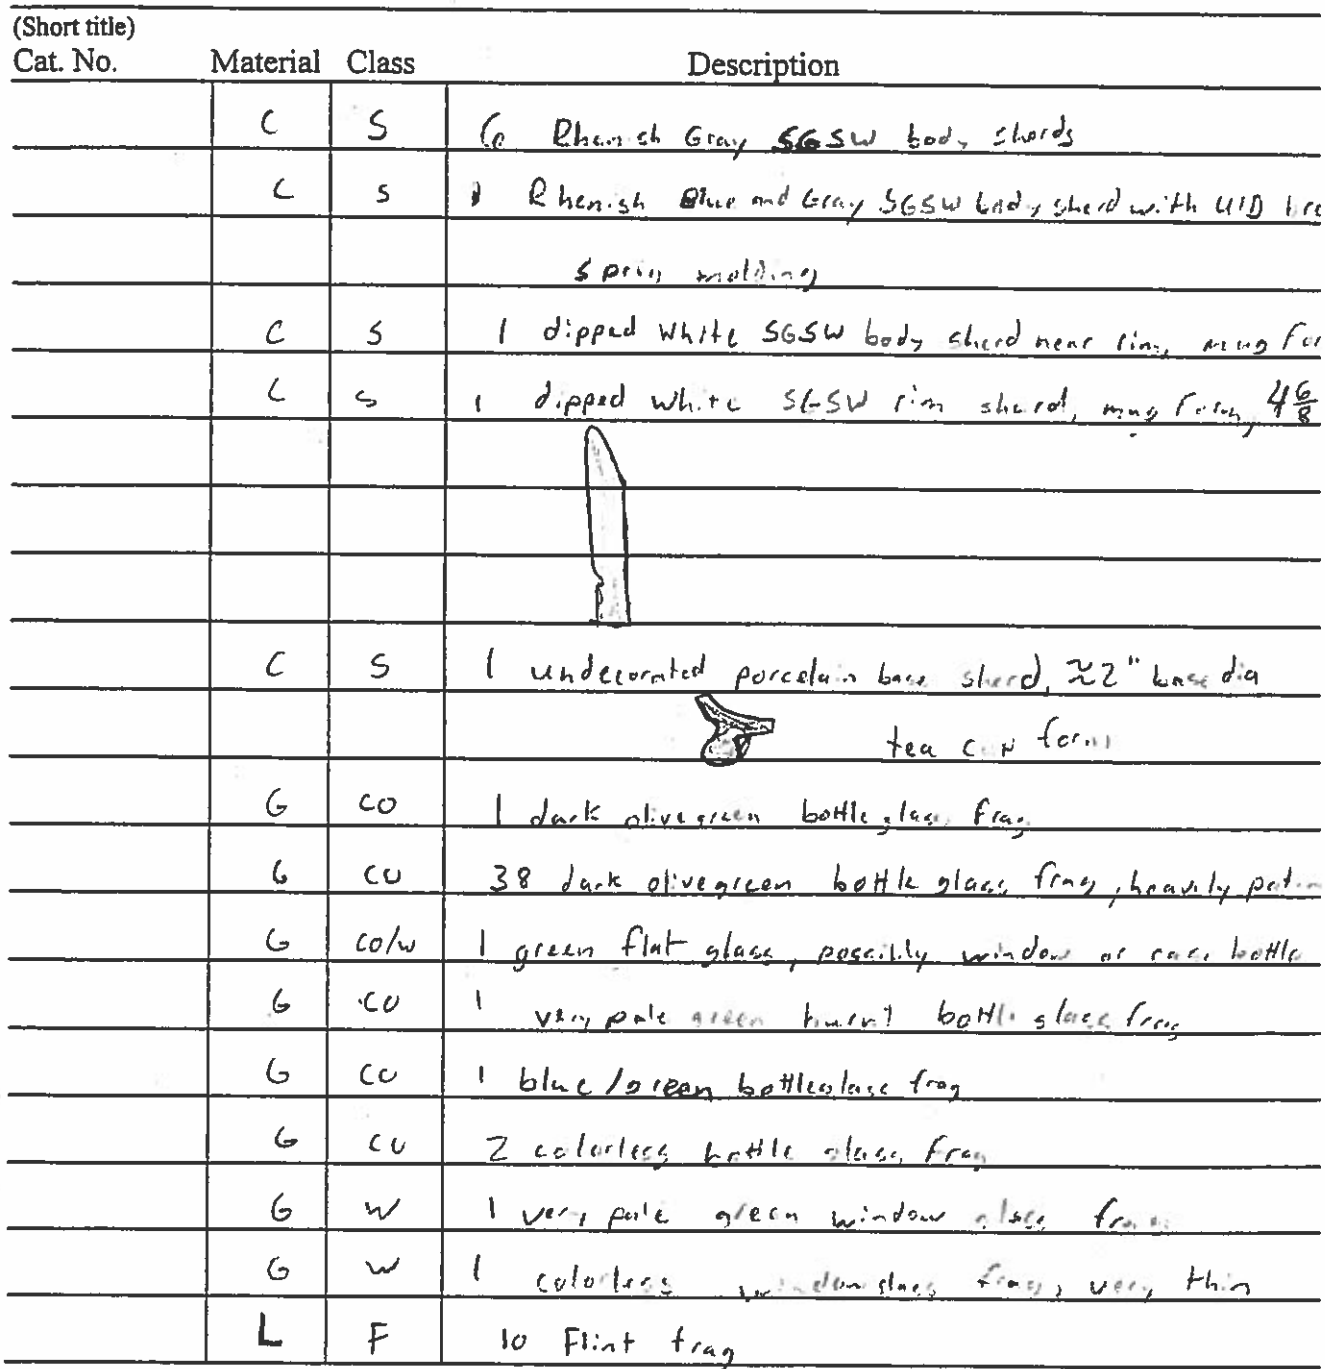 (Short title)
Cat. No. Material Class Description
C S 6 Rhenish Gray SGSW body sherds
C S 1 Rhenish Blue and Gray SGSW body sherd with UID
sprig molding
C S 1 dipped white SGSW body sherd near rim, mug for
C S 1 dipped white SGSW rim sherd, mug form, 4 6/8
C S 1 undecorated porcelain base sherd, ≈2" base dia
tea cup form
G CO 1 dark olivegreen bottle glass frag
G CO 38 dark olivegreen bottle glass frag, heavily patin
G CO/W 1 green flat glass, possibly window or case bottle
G CO 1 very pale green burnt bottle glass frag
G CO 1 blue/green bottleglass frag
G CO 2 colorless bottle glass frag
G W 1 very pale green window glass frag
G W 1 colorless window glass frag, very thin
L F 10 Flint frag